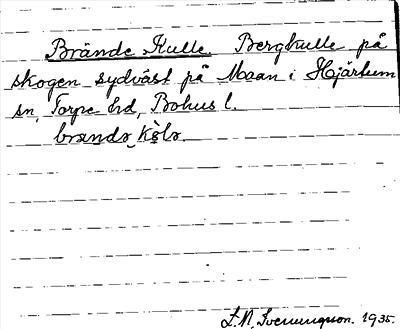 Brände Kulle. Bergkulle på
skogen sydväst på Maan i Hjärtum
sn, Torpe hd, Bohus l.
brandə kolə.
L. N. Svenungsson. 1935.